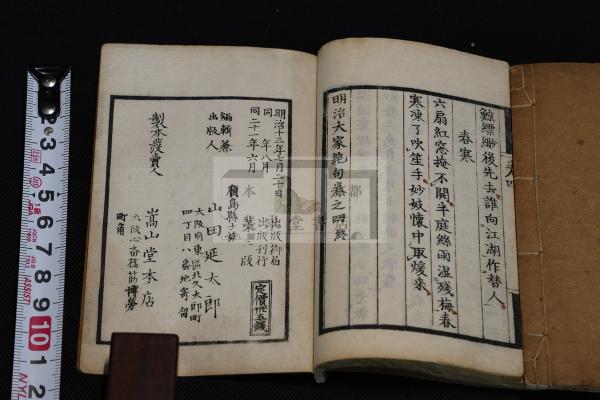 鯨縹緲後先去誰向江湖作替人
春寒
六扇紅窓掩不開半庭絲雨濕殘梅春
寒凍了吹笙手妙妓懷中取煖來
明治大家絶句卷之四終
明治十
同 年八月 出版刊行
同二十一年六月
版
廣島縣士族
編輯兼
出版人
山田延太郎
大阪府東區北久太郎町
四丁目八番地寄留
定價卅五錢
製本發賣人
嵩山堂本店
大阪心斎橋筋博勞
町角
1
2
3
4
5
6
7
8
9
10
1
2